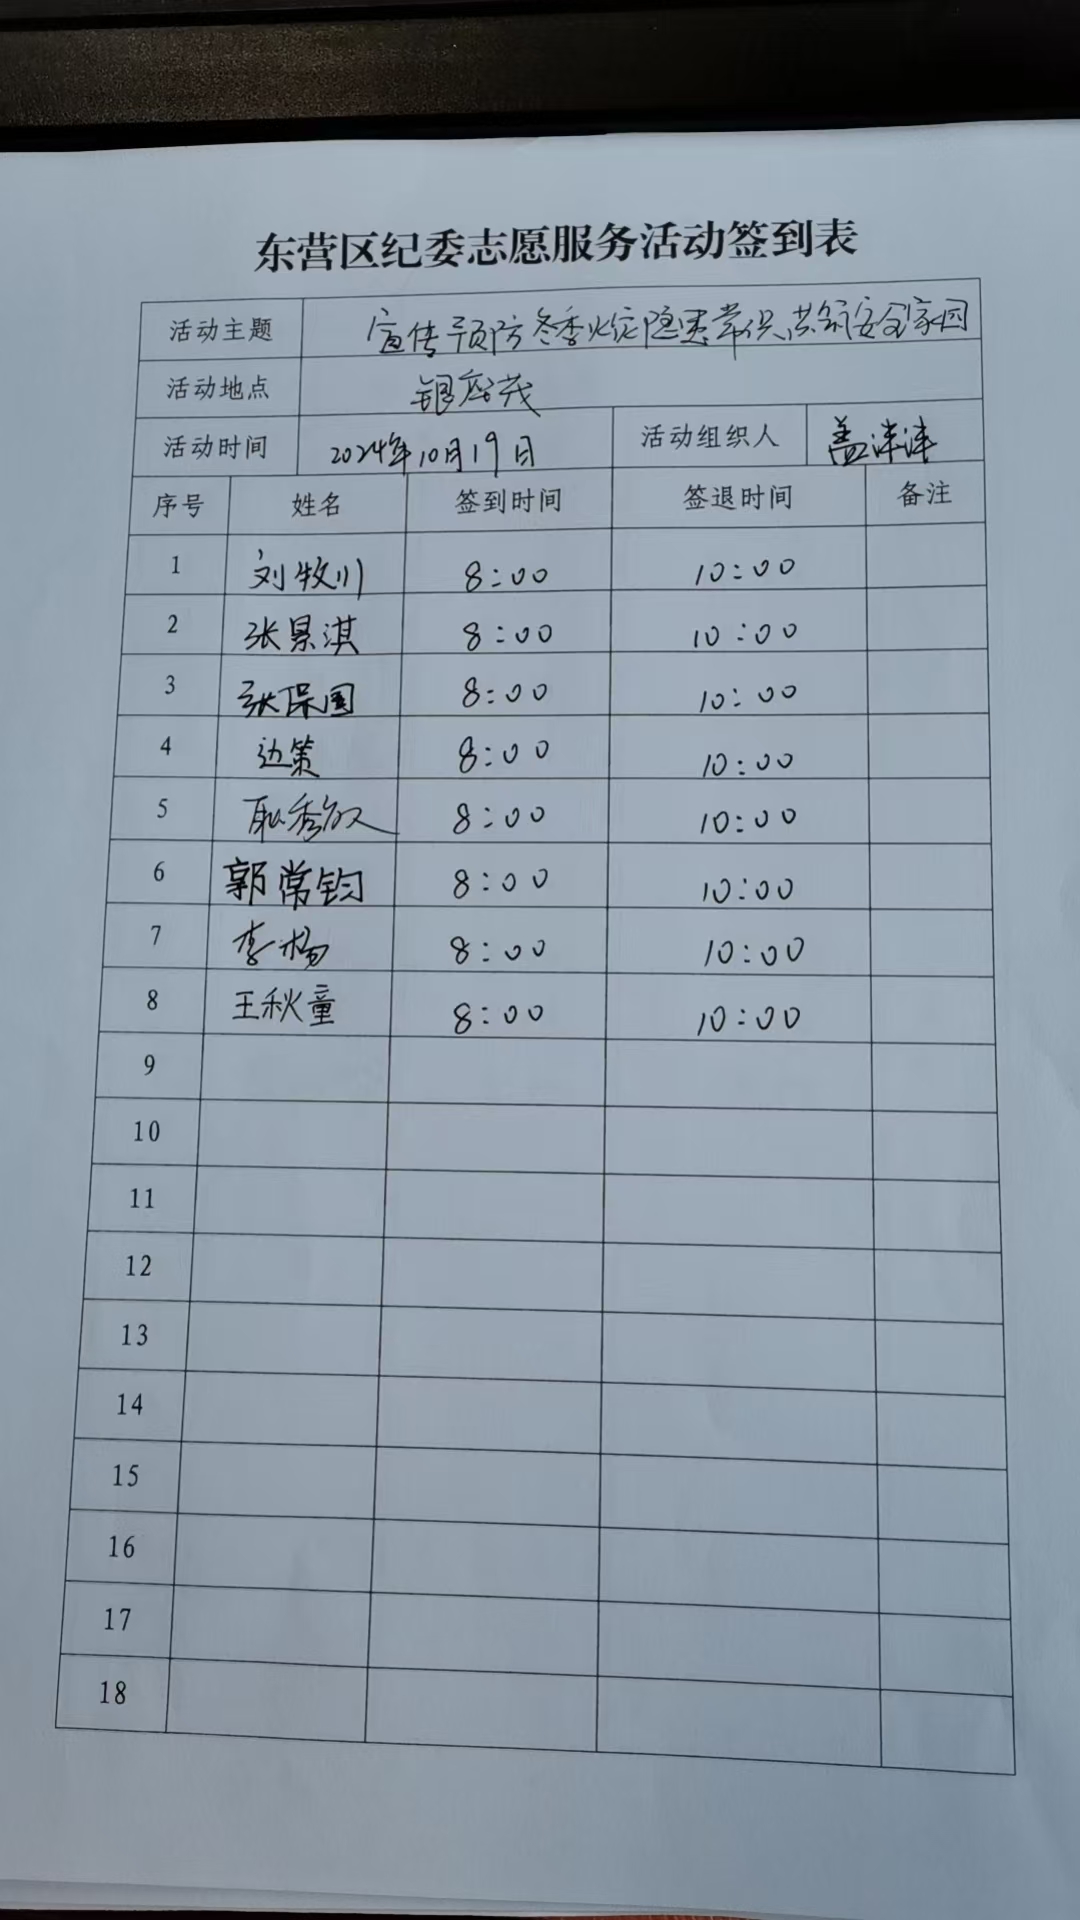 东营区纪委志愿服务活动签到表
活动主题 宣传预防冬季火灾隐患常识共筑安全家园
活动地点 银座茂
活动时间 2024年10月19日 活动组织人 盖沣沣
序号 姓名 签到时间 签退时间 备注
1 刘牧川 8:00 10:00
2 张景淇 8:00 10:00
3 张保国 8:00 10:00
4 边策 8:00 10:00
5 耿秀敏 8:00 10:00
6 郭常钧 8:00 10:00
7 李杨 8:00 10:00
8 王秋童 8:00 10:00
9
10
11
12
13
14
15
16
17
18